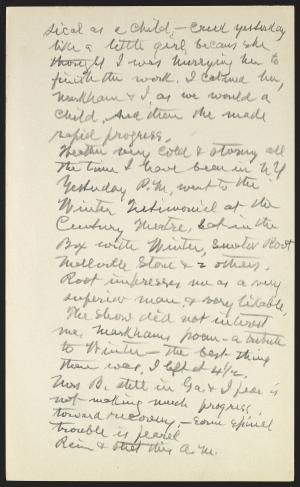 sical as a child, - cried yesterday
like a little girl, because she
thought I was hurrying her to
finish the work. I calmed her,
Markham & I, as we would a
child, and then she made
rapid progress.
Weather very cold & stormy all
the time I have been in N Y
Yesterday P.M. went to the
Winter Testimonial at the
Century Theatre, sat in the
Box with Winter, Senator Root
Mellville Stone & 2 others.
Root impresses me as a very
superior man & very likable,
The show did not interest
me, Markhams poem - a tribute
to Winter - the best thing
there was, I left at 4 1/2.
Mrs B. still in Ga & I fear is
not making much progress,
toward recovery, - some spinal
trouble is feared
Rain & sleet this A.M.